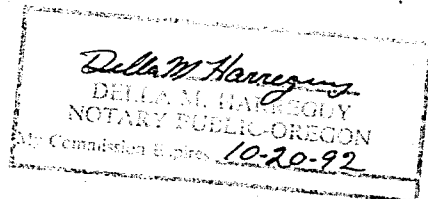 Della M Harreguy
DELLA M. HARREGUY
NOTARY PUBLIC-OREGON
My Commission Expires 10-20-92